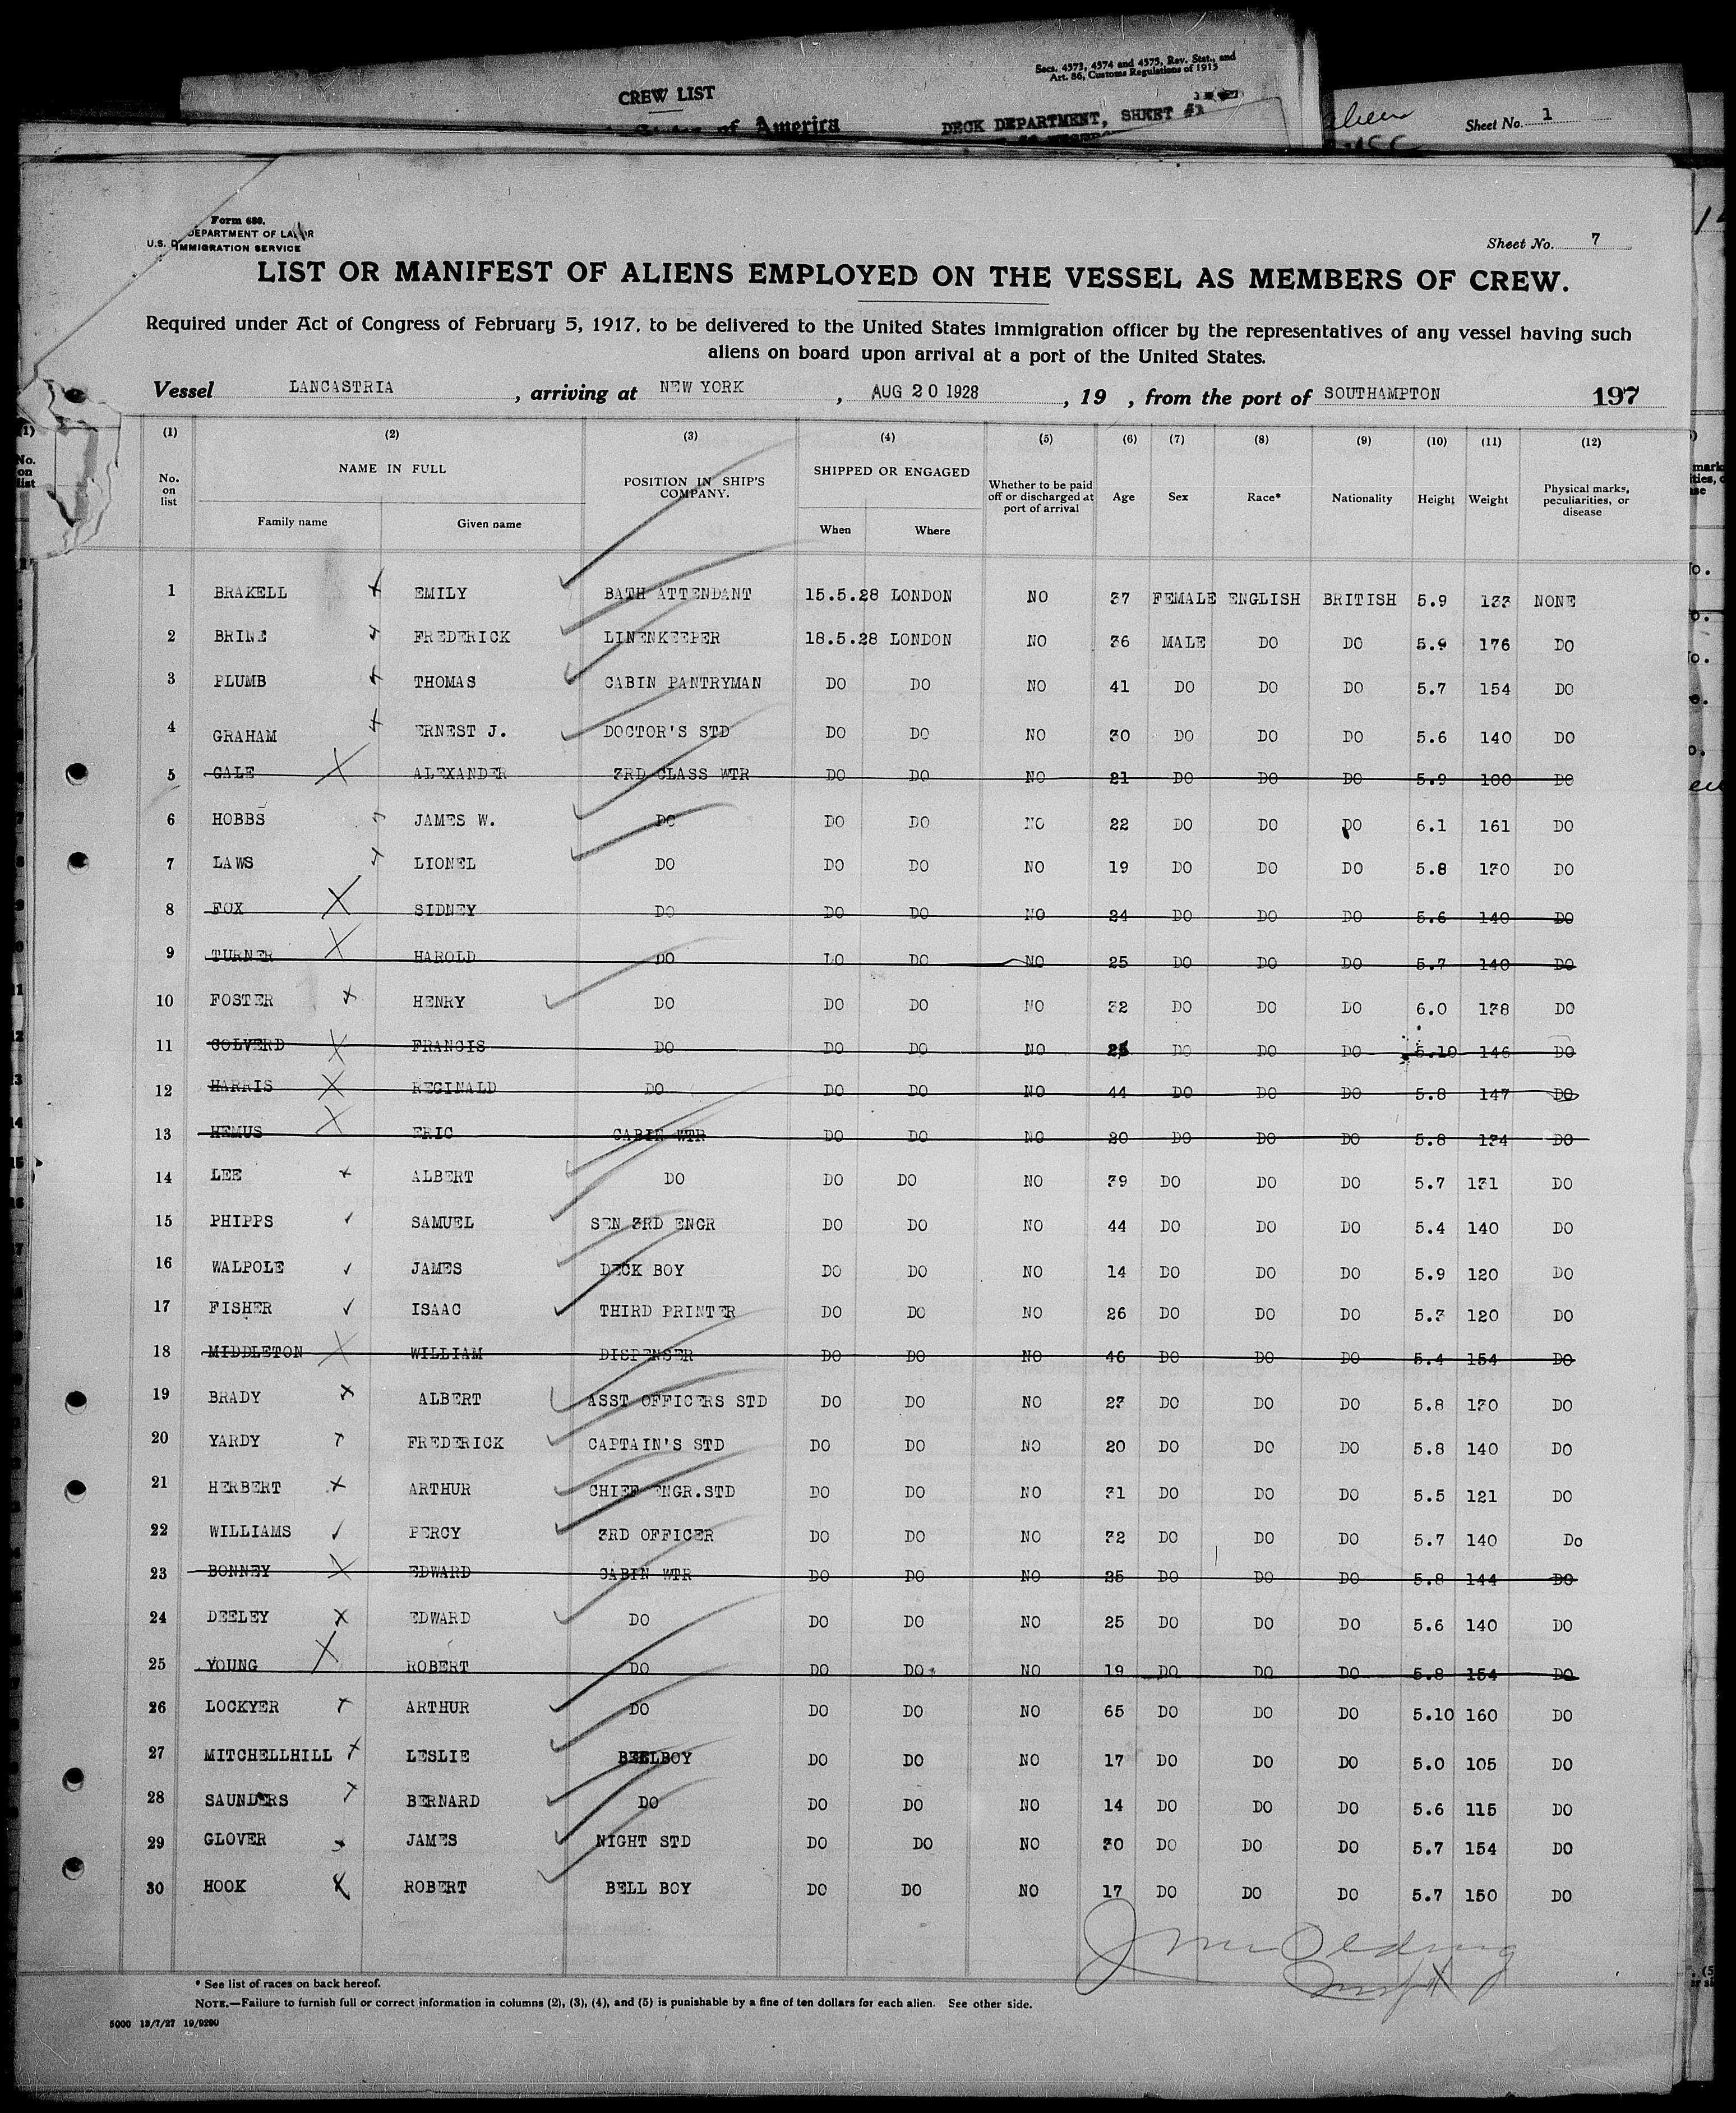 Secs. 4573, 4574 and 4575, Rev. Stat., and
Art. 86, Customs Regulations of 1915
CREW LIST
of America
DECK DEPARTMENT, SHEET
Sheet No. 1
Form 680.
U.S. DEPARTMENT OF LABOR
IMMIGRATION SERVICE
Sheet No. 7
LIST OR MANIFEST OF ALIENS EMPLOYED ON THE VESSEL AS MEMBERS OF CREW.
Required under Act of Congress of February 5, 1917, to be delivered to the United States immigration officer by the representatives of any vessel having such
aliens on board upon arrival at a port of the United States.
Vessel LANCASTRIA, arriving at NEW YORK, AUG 20 1928, 19 , from the port of SOUTHAMPTON 197
(1) (2) (3) (4) (5) (6) (7) (8) (9) (10) (11) (12)
No. on list NAME IN FULL Family name Given name POSITION IN SHIP'S COMPANY. SHIPPED OR ENGAGED When Where Whether to be paid off or discharged at port of arrival Age Sex Race* Nationality Height Weight Physical marks, peculiarities, or disease
1 BRAKELL EMILY BATH ATTENDANT 15.5.28 LONDON NO 37 FEMALE ENGLISH BRITISH 5.9 133 NONE
2 BRINE FREDERICK LINENKEEPER 18.5.28 LONDON NO 36 MALE DO DO 5.9 176 DO
3 PLUMB THOMAS CABIN PANTRYMAN DO DO NO 41 DO DO DO 5.7 154 DO
4 GRAHAM ERNEST J. DOCTOR'S STD DO DO NO 30 DO DO DO 5.6 140 DO
5 GALE ALEXANDER 3RD CLASS WTR DO DO NO 21 DO DO DO 5.9 100 DO
6 HOBBS JAMES W. DO DO DO NO 22 DO DO DO 6.1 161 DO
7 LAWS LIONEL DO DO DO NO 19 DO DO DO 5.8 130 DO
8 FOX SIDNEY DO DO DO NO 24 DO DO DO 5.6 140 DO
9 TURNER HAROLD DO DO DO NO 25 DO DO DO 5.7 140 DO
10 FOSTER HENRY DO DO DO NO 32 DO DO DO 6.0 138 DO
11 COLVERD FRANCIS DO DO DO NO DO DO DO 5.10 146 DO
12 HARRIS REGINALD DO DO DO NO 44 DO DO DO 5.8 147 DO
13 HEMUS ERIC CABIN WTR DO DO NO 20 DO DO DO 5.8 134 DO
14 LEE ALBERT DO DO DO NO 39 DO DO DO 5.7 131 DO
15 PHIPPS SAMUEL SEN 3RD ENGR DO DO NO 44 DO DO DO 5.4 140 DO
16 WALPOLE JAMES DECK BOY DO DO NO 14 DO DO DO 5.9 120 DO
17 FISHER ISAAC THIRD PRINTER DO DO NO 26 DO DO DO 5.3 120 DO
18 MIDDLETON WILLIAM DISPENSER DO DO NO 46 DO DO DO 5.4 154 DO
19 BRADY ALBERT ASST OFFICERS STD DO DO NO 23 DO DO DO 5.8 130 DO
20 YARDY FREDERICK CAPTAIN'S STD DO DO NO 20 DO DO DO 5.8 140 DO
21 HERBERT ARTHUR CHIEF ENGR.STD DO DO NO 31 DO DO DO 5.5 121 DO
22 WILLIAMS PERCY 3RD OFFICER DO DO NO 32 DO DO DO 5.7 140 Do
23 BONNEY EDWARD CABIN WTR DO DO NO 25 DO DO DO 5.8 144 DO
24 DEELEY EDWARD DO DO DO NO 25 DO DO DO 5.6 140 DO
25 YOUNG ROBERT DO DO DO NO 19 DO DO DO 5.8 154 DO
26 LOCKYER ARTHUR DO DO DO NO 65 DO DO DO 5.10 160 DO
27 MITCHELLHILL LESLIE BELLBOY DO DO NO 17 DO DO DO 5.0 105 DO
28 SAUNDERS BERNARD DO DO DO NO 14 DO DO DO 5.6 115 DO
29 GLOVER JAMES NIGHT STD DO DO NO 30 DO DO DO 5.7 154 DO
30 HOOK ROBERT BELL BOY DO DO NO 17 DO DO DO 5.7 150 DO
* See list of races on back hereof.
NOTE.—Failure to furnish full or correct information in columns (2), (3), (4), and (5) is punishable by a fine of ten dollars for each alien. See other side.
5000 13/7/27 19/9290